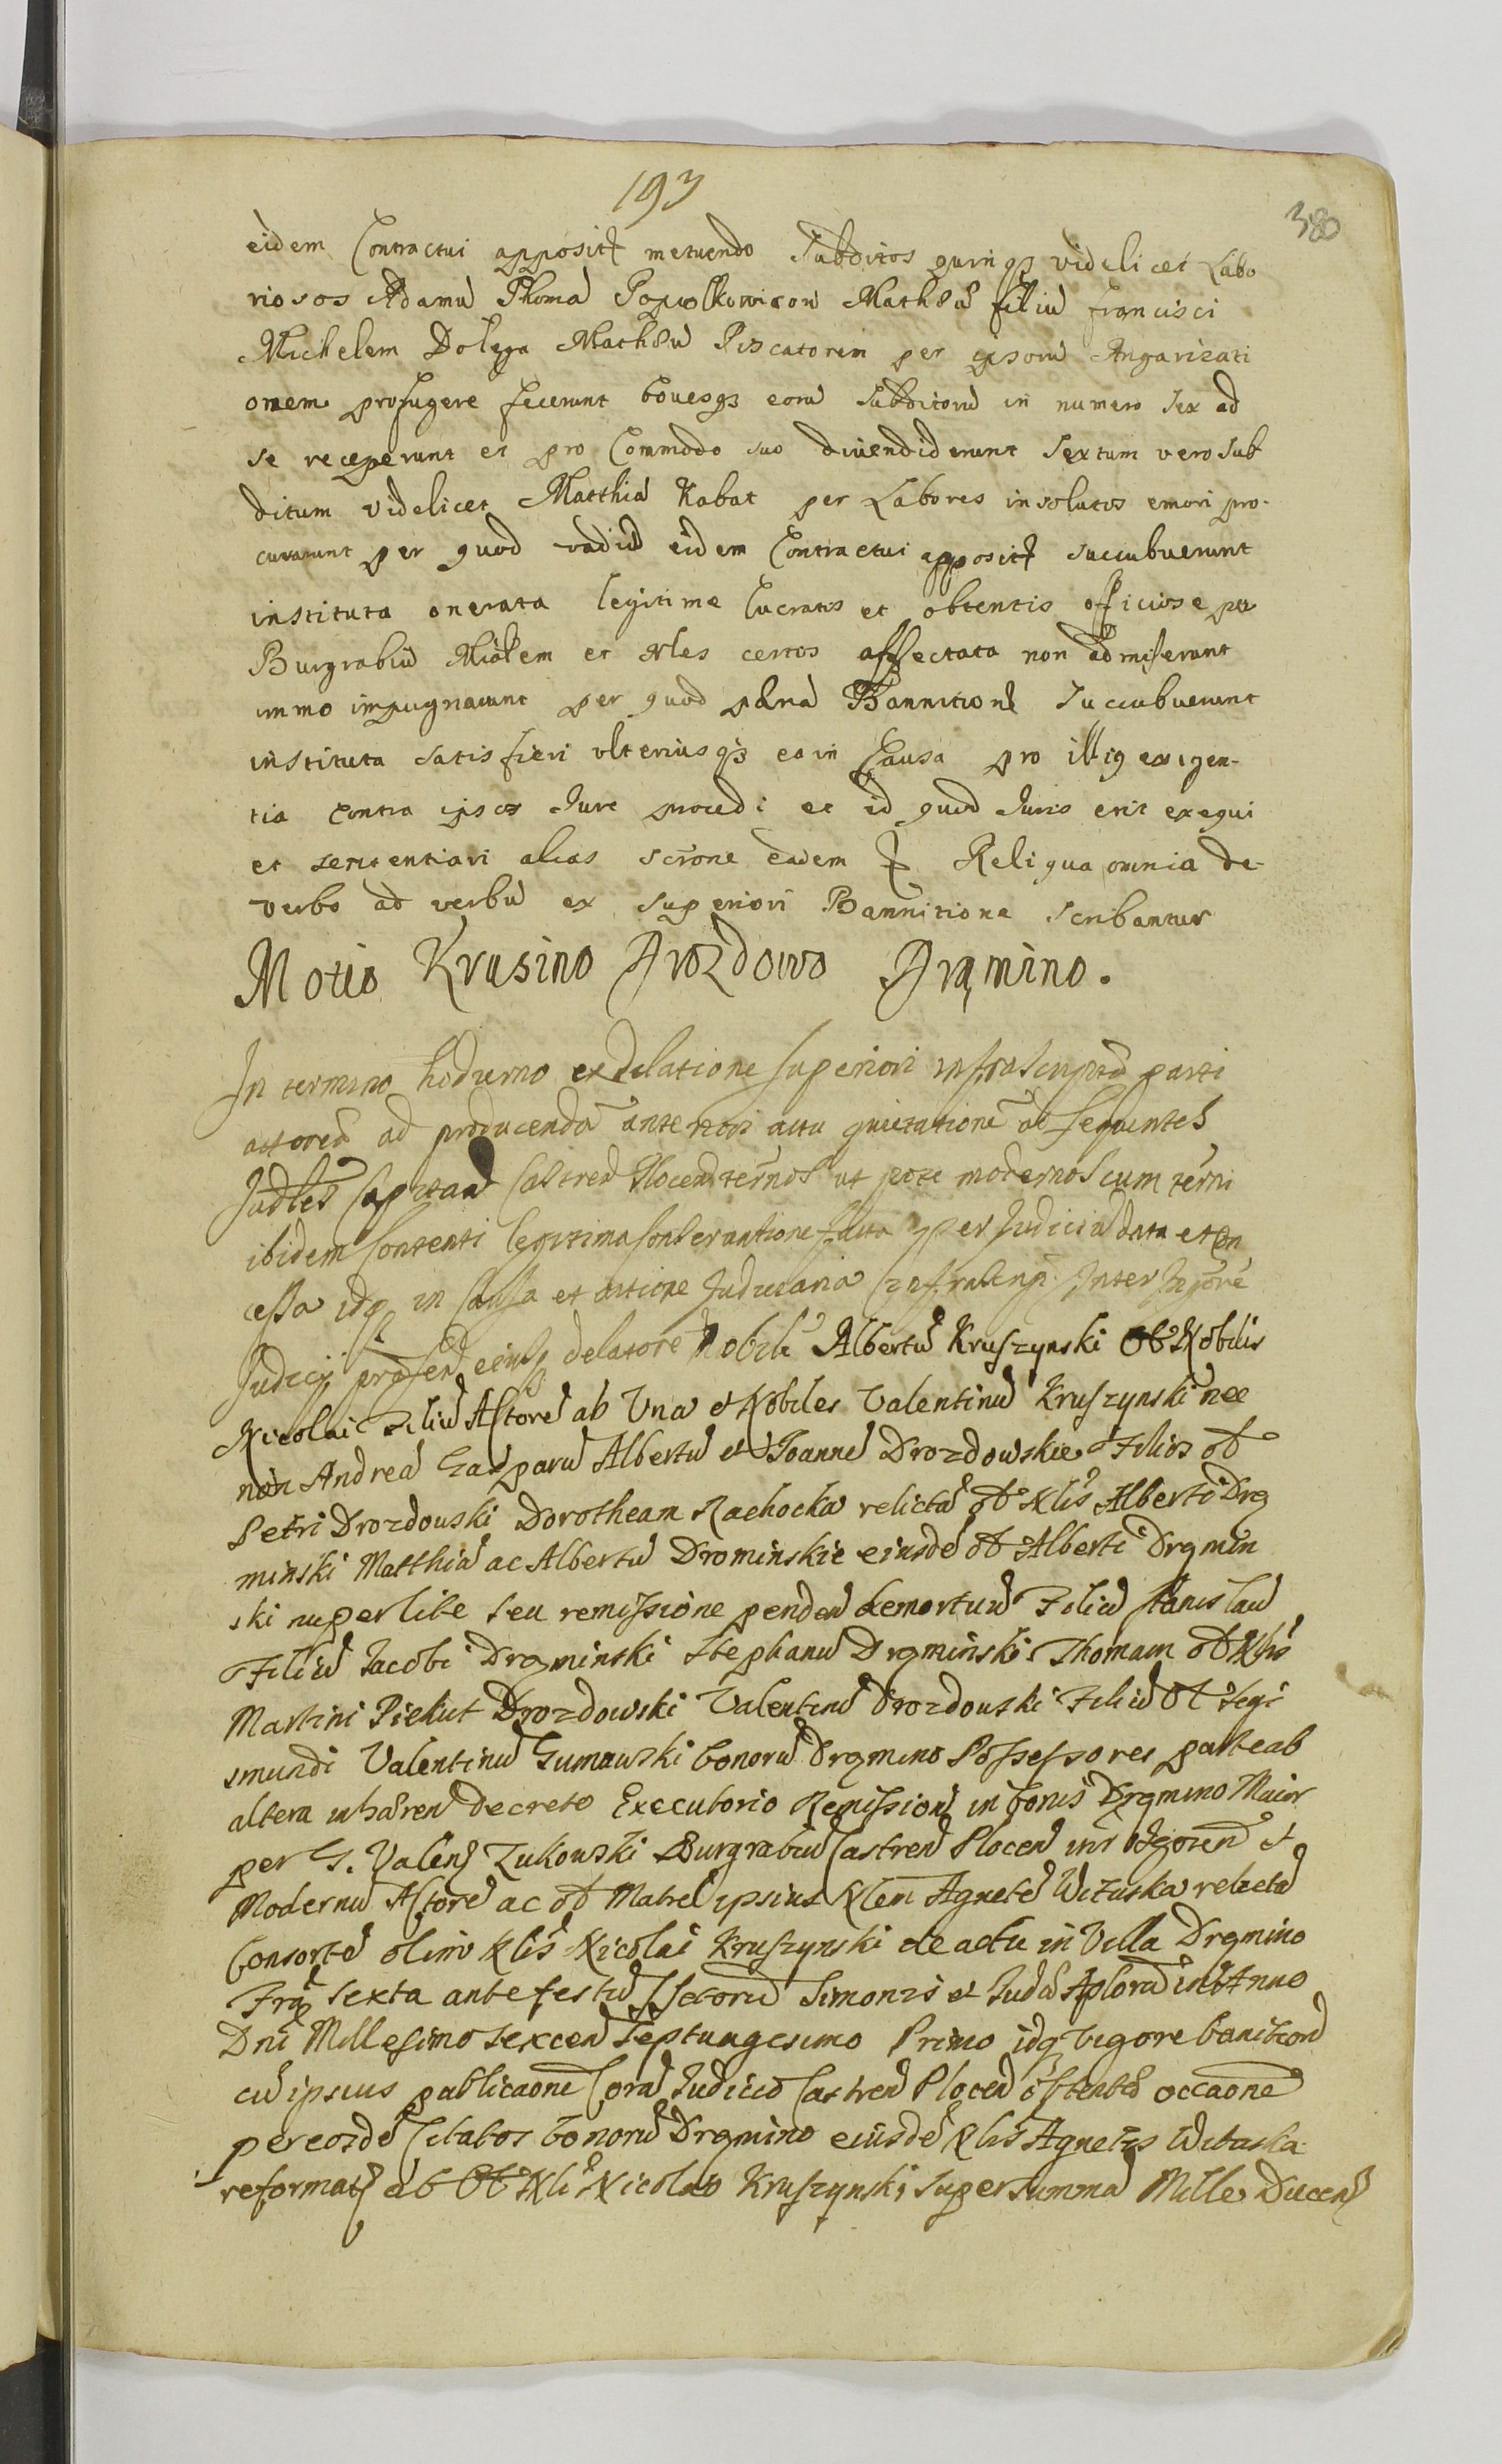 193
380
eidem Contractui apposit. metuendo Subditos quinq3 videlicet Labo
riosos Adamū Thomā Popiołkowicow Mathæū filiū francisci
Michelem Dolega Mathæū Piscatorem per ipsorū Angarizati
onem profugere fecerunt bovesq3 eorū Subditorū in numero sex ad
se receperunt et pro Commodo suo divendiderunt Sextum vero Sub
ditum videlicet Matthiā Kabat per Labores insolutos emori pro-
curarunt per quod vadiū eidem Contractui apposit. succubuerunt
instituta onerata legitime lucratis et obtentis officiose per
Burgrabiū Mialem et Nles certos affectata non admiserunt
immo impugnarunt per quod pæna Bannitionis succubuerunt
instituta satisfieri ulteriusq3 ea in Causa pro illius exigen-
tia contra ipsos Jure procedi et id quod Juris erit exequi
et sententiari alias scrone eadem Reliqua omnia de
verbo ad verbū ex superiori Bannitione scribantur
Motio Krusino Drozdowo Drąmino.
In termino hodierno ex dilatione superiori infrascriptæ parti
actoreæ ad producendā anteriori actu quietationē ad sequentes
Judles Capitan Castren Plocen ternos ut pote modernos cum terni
ibidem contenti legitima conservatione facta per Judiciū data et con
cessa idq3 in causa et actione Judiciaria infrascrip. Inter Instore
Judicij præsen eiusq3 delatore Nobile Albertū Kruszynski Ol Nobilis
Nicolai Filiū Actore ab Una et Nobiles Valentinū Kruszynski nec
non Andreā Gasparū Albertū et Joanne Drozdowskie Filios ol
Petri Drozdowski Dorotheam Rachocka relictā ol Nlis Alberti Drą
minski Matthiā ac Albertū Drominskie eiusdē ol Alberti Drąmin
ski nuper lite seu remissione penden demortuū Filiū Stanislaū
Filiū Jacobi Drąminski Stephanū Drąminski Thomam ol Nlis
Martini Piekut Drozdowski Valentinū Drozdowski Filiū Ol Segi
smundi Valentinū Gumowski bonorū Drąmino Possessores parte ab
altera inhæren Decreto Executorio Remissionis in bonis Drąmino Maior
per G. Valen Zukowski Burgrabiū Castren Plocen inr
Modernū Actore ac ol Matre ipsius Nlem Agnete Wituska relicta
Consorte olim Nlis Nicolai Kruszynski de actu in Villa Drąmino
Fra Sexta ante festū SSctorū Simonis et Judæ Aplorū in Anno
Dni Millesimo Sexcen Septuagesimo Primo idq3 vigore banition
cū ipsius publicaone Corā Judicio Castren Plocen obtentæ occaone
per eosdē Citatos bonorū Drąmino eiusdē Nlis Agnetis Wituska
reformat. ab Ol Nli Nicolao Kruszynski super Summa Mille Ducen